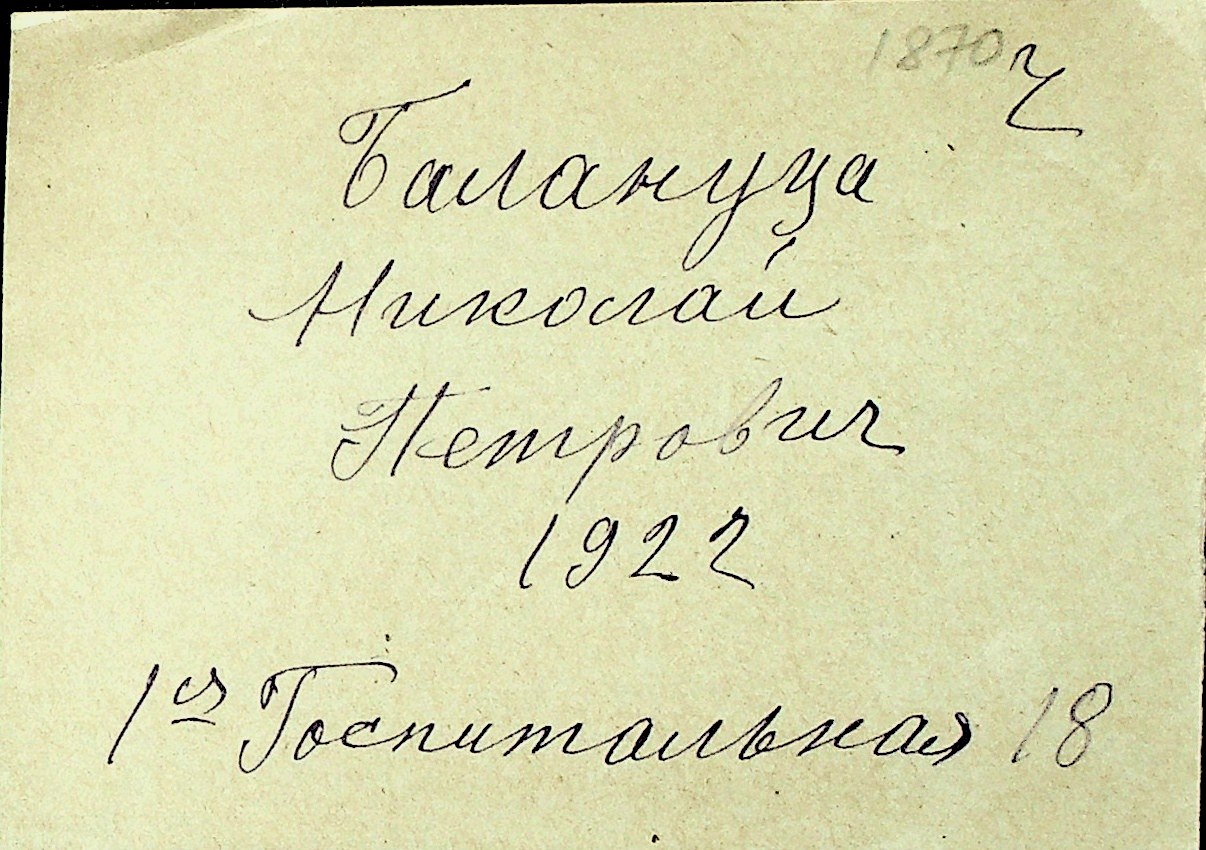 1870 Ч
Балануца
Николай
Петрович
1922
1ая Госпитальная 18